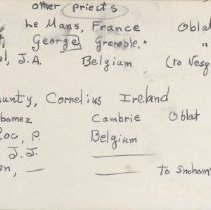 other priests
Le Mans, France Oblat
George Grenoble, " "
l, J.A. Belgium (to Nesq
unty, Cornelius Ireland
bomez Cambrie Oblat
loc, P. Belgium
J.J.
en, — to Snohom